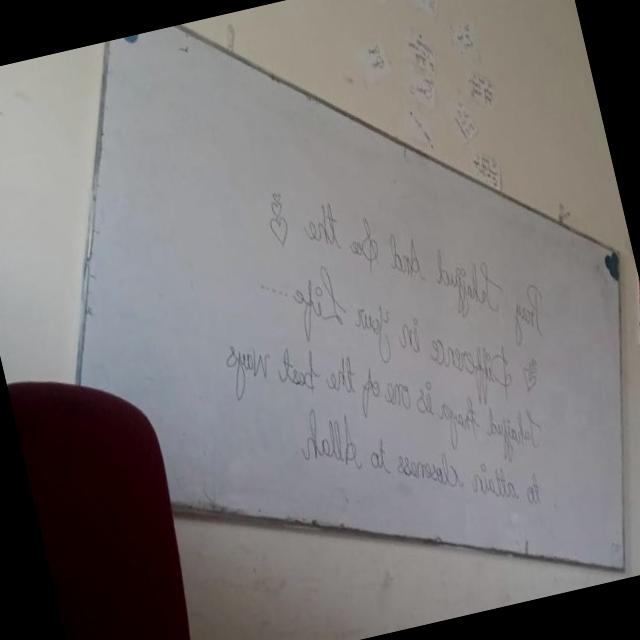 Pray Tahajjud And See the
Difference in your Life ......
Tahajjud Prayer is one of the best ways
to attain closeness to Allah.